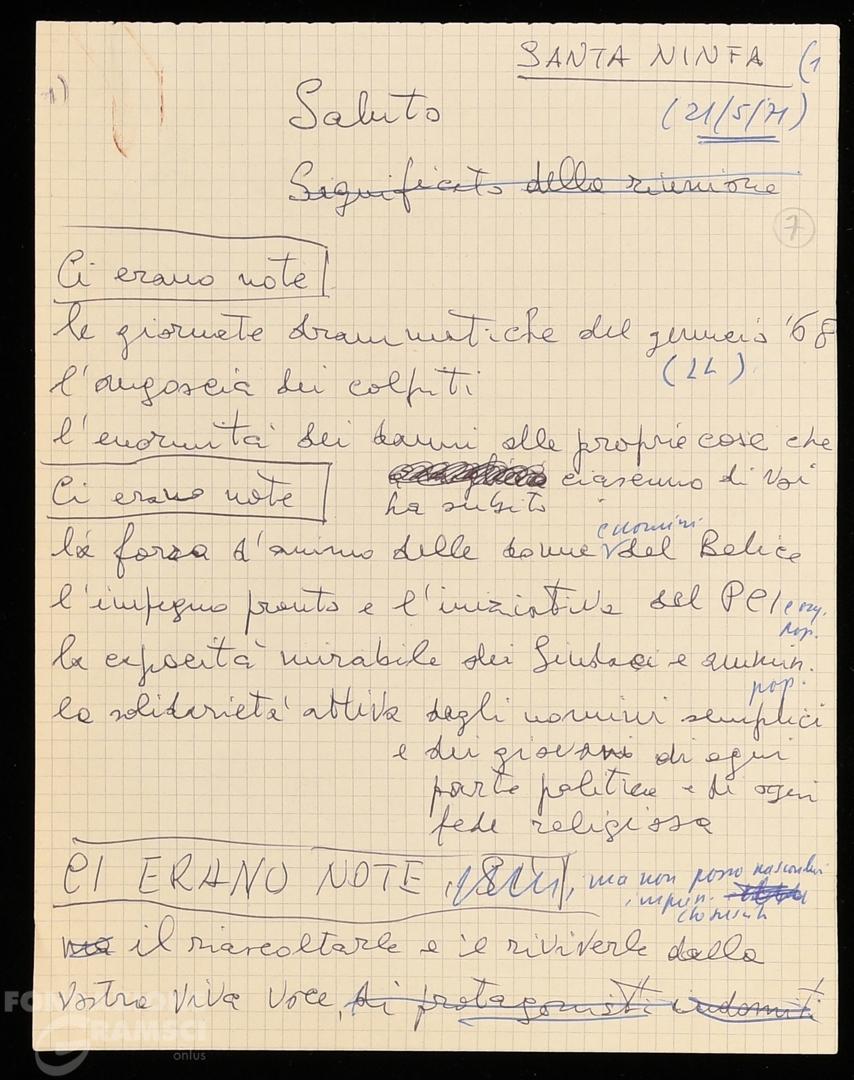 SANTA NINFA (1
1)
Saluto (21/5/71)
Significato della riunione
7
Ci erano note
le giornate drammatiche del gennaio '68
l'angoscia dei colpiti
l'enormità dei danni alle proprie cose che
ciascuno di voi
ha subito
Ci erano note
e uomini
la forza d'animo delle donne del Belice
l'impegno pronto e l'iniziativa del PCI e org.
pop.
la capacità mirabile dei Sindaci e ammin.
pop.
la solidarietà attiva degli uomini semplici
e dei giovani di ogni
parte politica e di ogni
fede religiosa
CI ERANO NOTE, ma non posso nascondervi
ma il riascoltarle e il riviverle dalla
vostra viva voce, di protagonisti indomiti
FONDAZIONE
GRAMSCI
onlus